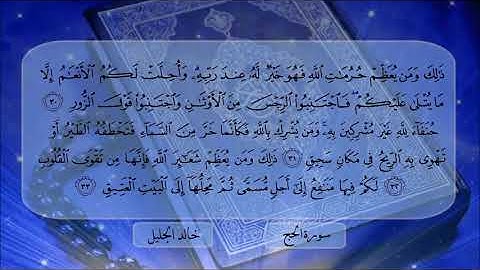 ذَٰلِكَ وَمَن يُعَظِّمْ حُرُمَٰتِ ٱللَّهِ فَهُوَ خَيْرٌ لَّهُۥ عِندَ رَبِّهِۦ ۗ وَأُحِلَّتْ لَكُمُ ٱلْأَنْعَٰمُ إِلَّا
مَا يُتْلَىٰ عَلَيْكُمْ ۖ فَٱجْتَنِبُوا۟ ٱلرِّجْسَ مِنَ ٱلْأَوْثَٰنِ وَٱجْتَنِبُوا۟ قَوْلَ ٱلزُّورِ ٣٠
حُنَفَآءَ لِلَّهِ غَيْرَ مُشْرِكِينَ بِهِۦ ۚ وَمَن يُشْرِكْ بِٱللَّهِ فَكَأَنَّمَا خَرَّ مِنَ ٱلسَّمَآءِ فَتَخْطَفُهُ ٱلطَّيْرُ أَوْ
تَهْوِى بِهِ ٱلرِّيحُ فِى مَكَانٍ سَحِيقٍ ٣١ ذَٰلِكَ وَمَن يُعَظِّمْ شَعَٰٓئِرَ ٱللَّهِ فَإِنَّهَا مِن تَقْوَى ٱلْقُلُوبِ
٣٢ لَكُمْ فِيهَا مَنَٰفِعُ إِلَىٰٓ أَجَلٍ مُّسَمًّى ثُمَّ مَحِلُّهَآ إِلَى ٱلْبَيْتِ ٱلْعَتِيقِ ٣٣
سورة الحج
خالد الجليل